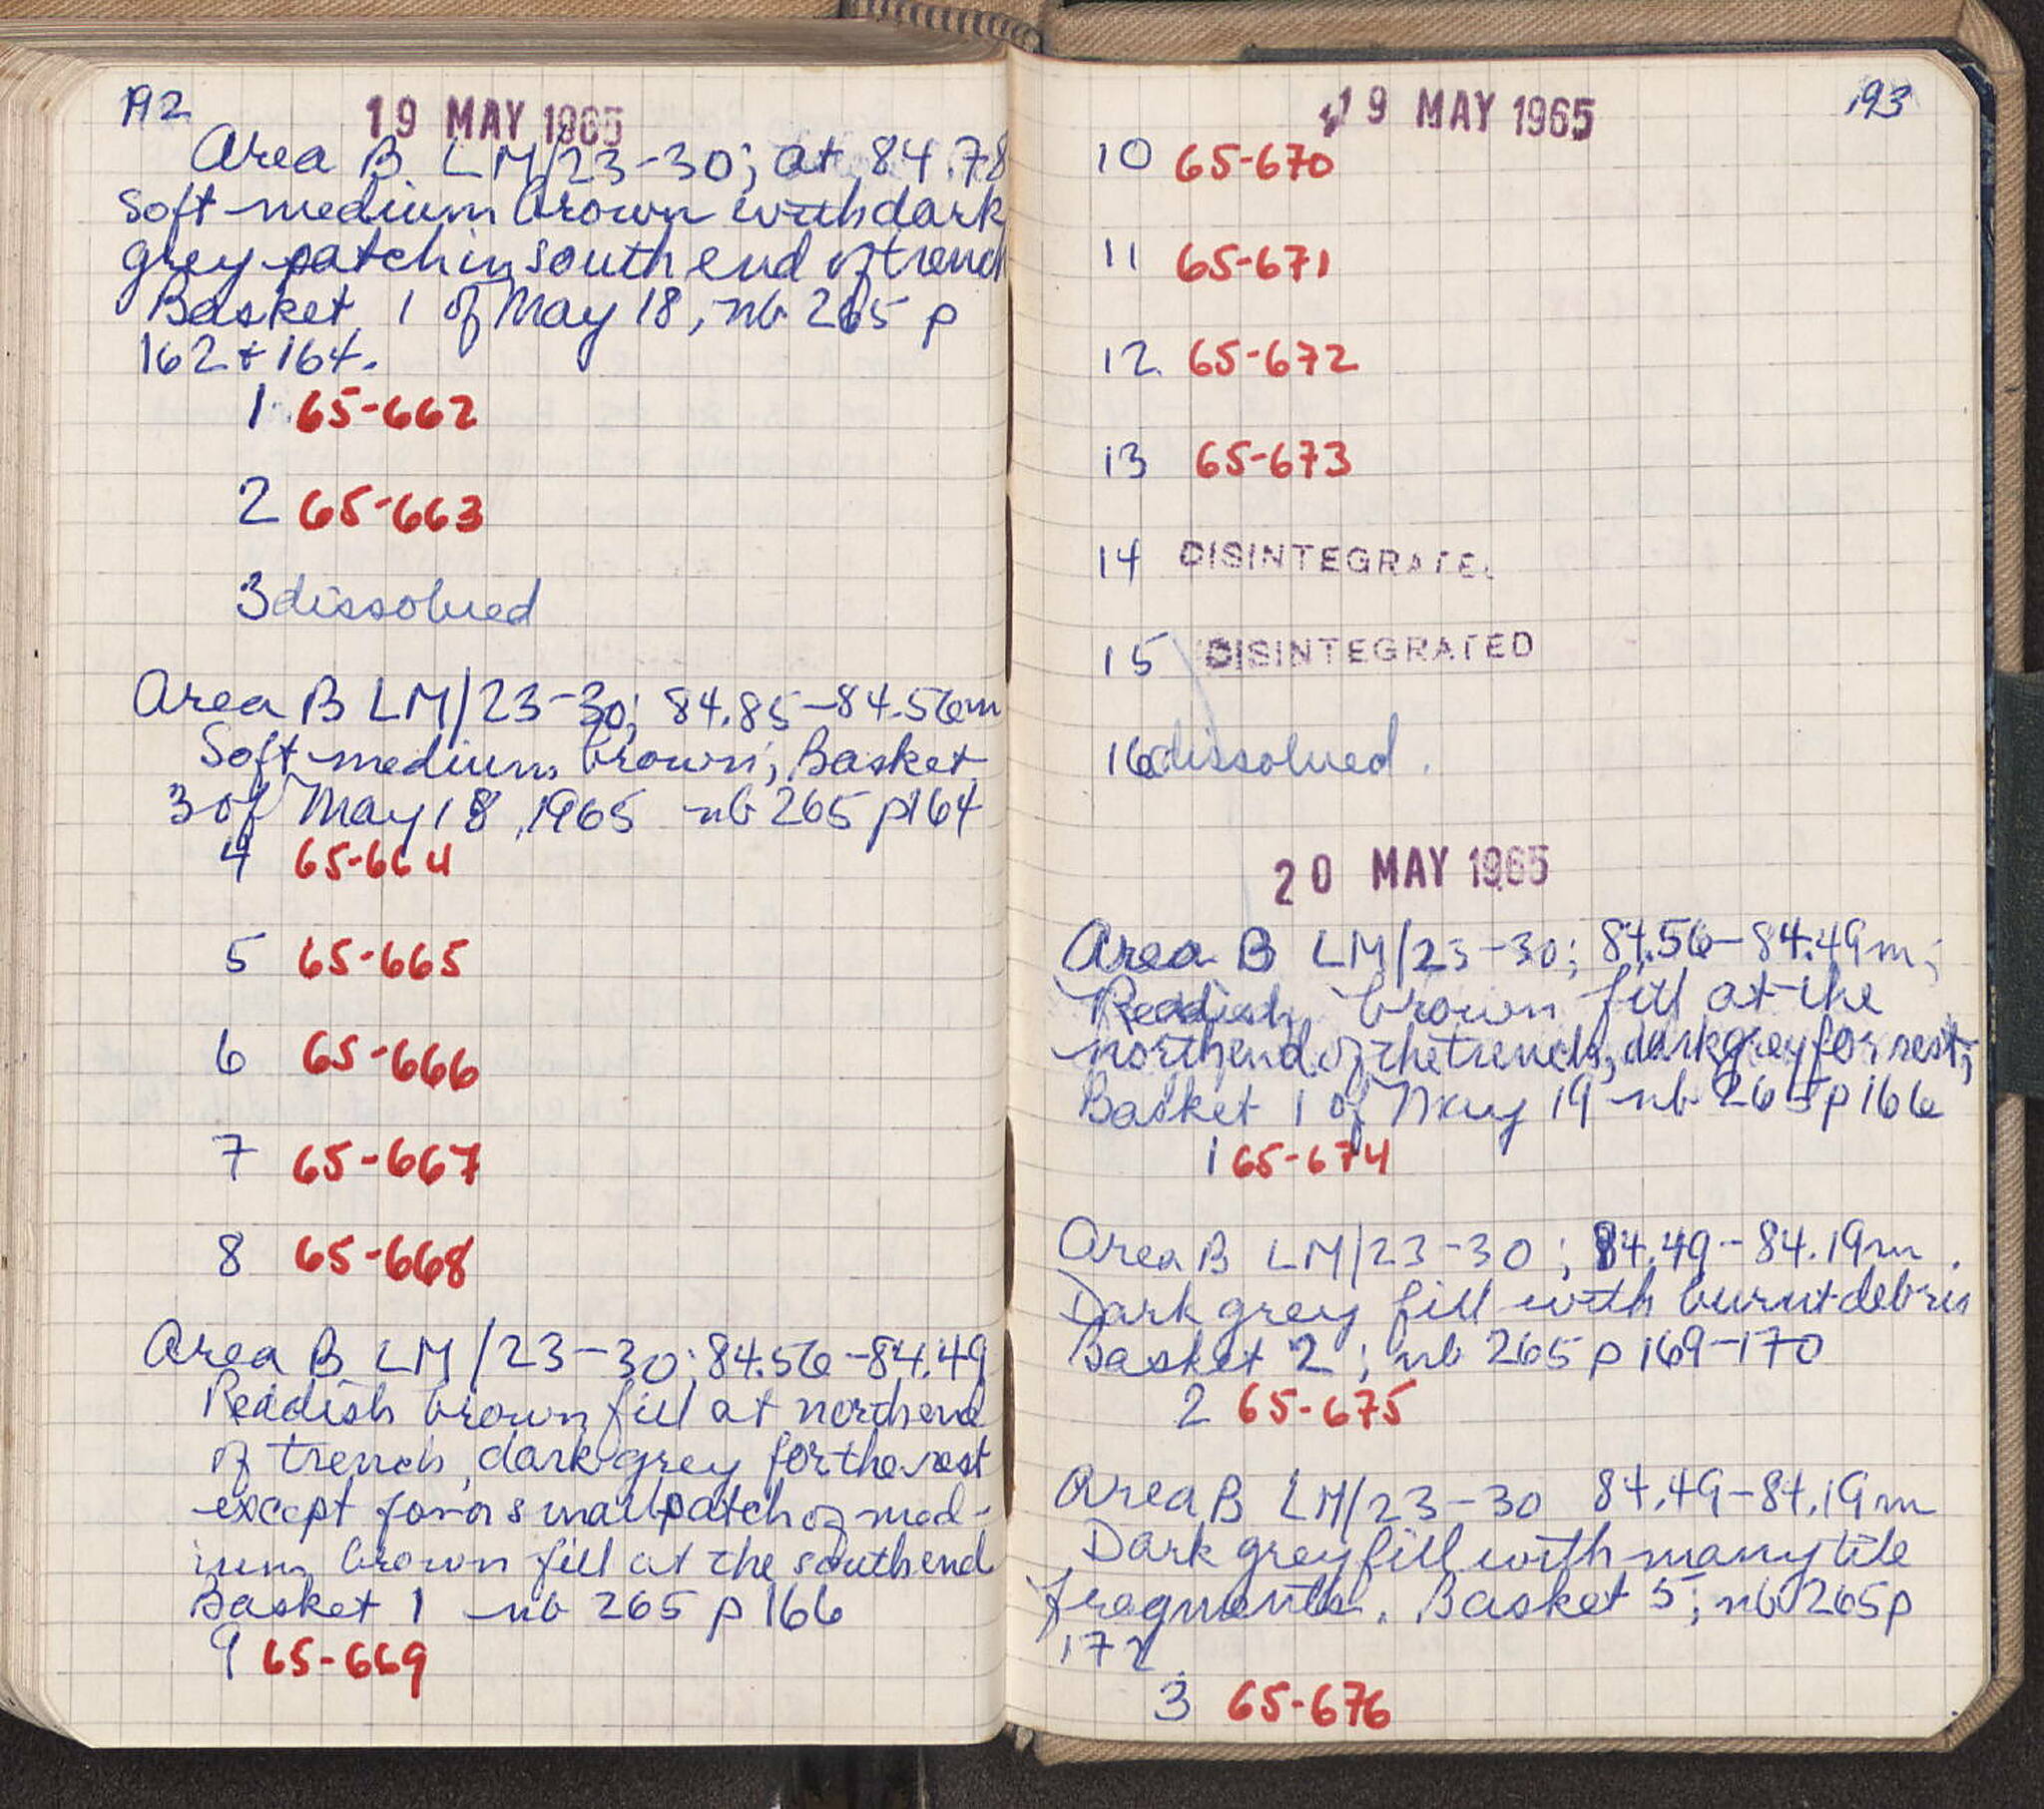 192
19 MAY 1965
Area B LM/23-30; at 84.78
soft medium brown with dark
grey patch in south end of trench
Basket 1 of May 18, nb 265 p
162 + 164.
1 65-662
2 65-663
3 dissolved
Area B LM/23-30; 84.85-84.56m
Soft medium brown; Basket
3 of May 18, 1965 nb 265 p164
4 65-664
5 65-665
6 65-666
7 65-667
8 65-668
Area B LM/23-30; 84.56-84.49
Reddish brown fill at north end
of trench, dark grey for the rest
except for a small patch of med-
ium brown fill at the south end
Basket 1 nb 265 p 166
9 65-669
19 MAY 1965
193
10 65-670
11 65-671
12 65-672
13 65-673
14 DISINTEGRATE
15 DISINTEGRATED
16 dissolved.
20 MAY 1965
Area B LM/23-30; 84.56-84.49m;
Reddish brown fill at the
north end of the trench, dark grey for rest;
Basket 1 of May 19 nb 265 p 166
1 65-674
Area B LM/23-30; 84.49-84.19m.
Dark grey fill with burnt debris
Basket 2; nb 265 p 169-170
2 65-675
Area B LM/23-30 84.49-84.19m
Dark grey fill with many tile
fragments. Basket 5; nb 265 p
172
3 65-676